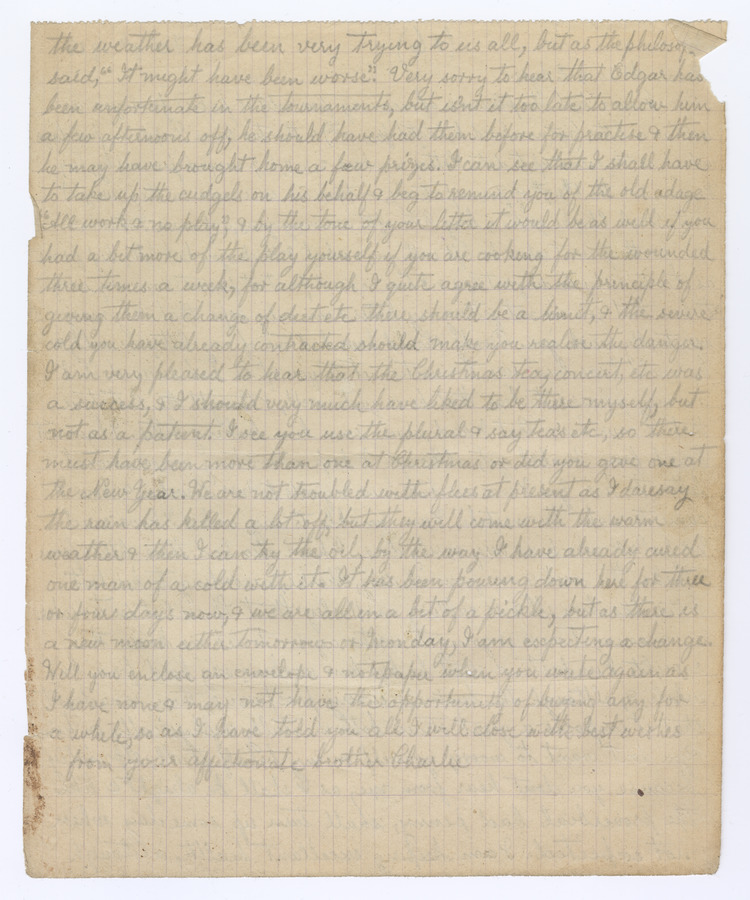 the weather has been very trying to us all, but as the philosop-
said, "It might have been worse". Very sorry to hear that Edgar has
been unfortunate in the tournaments, but isn't it too late to allow him
a few afternoons off, he should have had them before for practise & then
he may have brought home a few prizes. I can see that I shall have
to take up the cudgels on his behalf & beg to remind you of the old adage
"All work & no play" & by the tone of your letter it would be as well if you
had a bit more of the play yourself if you are cooking for the wounded
three times a week, for although I quite agree with the principle of
giving them a change of diet etc there should be a limit, & the severe
cold you have already contracted should make you realise the danger.
I am very pleased to hear that the Christmas tea, concert, etc was
a success, & I should very much have liked to be there myself, but
not as a patient. I see you use the plural & say teas etc, so there
must have been more than one at Christmas or did you give one at
the New Year. We are not troubled with flies at present as I daresay
the rain has killed a lot off, but they will come with the warm
weather & then I can try the oil, by the way I have already cured
one man of a cold with it. It has been pouring down here for three
or four days now, & we are all in a bit of a pickle, but as there is
a new moon either tomorrow or Monday, I am expecting a change.
Will you enclose an envelope & notepaper when you write again as
I have none & may not have the opportunity of buying any for
a while, so as I have told you all I will close with best wishes
from your affectionate brother Charlie